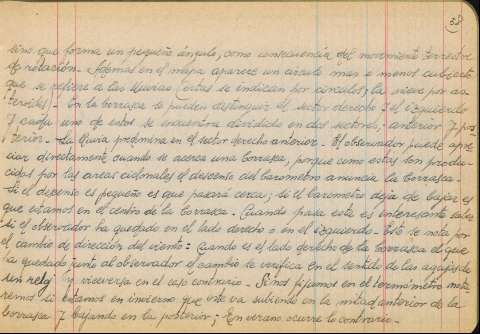 38
sino que forma un pequeño ángulo, como consecuencia del movimiento terrestre
de rotación.- Además en el mapa aparece un circulo mas o menos cubierto
que se refiere a las lluvias (estas se indican por circulos, la nieve por as-
teriscos).- En la borrasca se pueden distinguir el sector derecho y el izquierdo
y cada uno de estos se encuentra dividido en dos sectores, anterior y pos-
terior.- La lluvia predomina en el sector derecho anterior.- El observador puede apre-
ciar directamente cuando se acerca una borrasca, porque como estas son produ-
cidas por las areas ciclonales el descenso del barometro anuncia la borrasca.-
Si el descenso es pequeño es que pasará cerca; si el barometro deja de bajar es
que estamos en el centro de la borrasca.- Cuando pasa esta es interesante saber
si el observador ha quedado en el lado derecho o en el izquierdo. Esto se nota por
el cambio de dirección del viento: Cuando es el lado derecho de la borrasca el que
ha quedado junto al observador el cambio se verifica en el sentido de las agujas de
un reloj y viceversa en el caso contrario.- Si nos fijamos en el termómetro nota-
remos si estamos en invierno que este va subiendo en la mitad anterior de la
borrasca y bajando en la posterior; En verano ocurre lo contrario.-